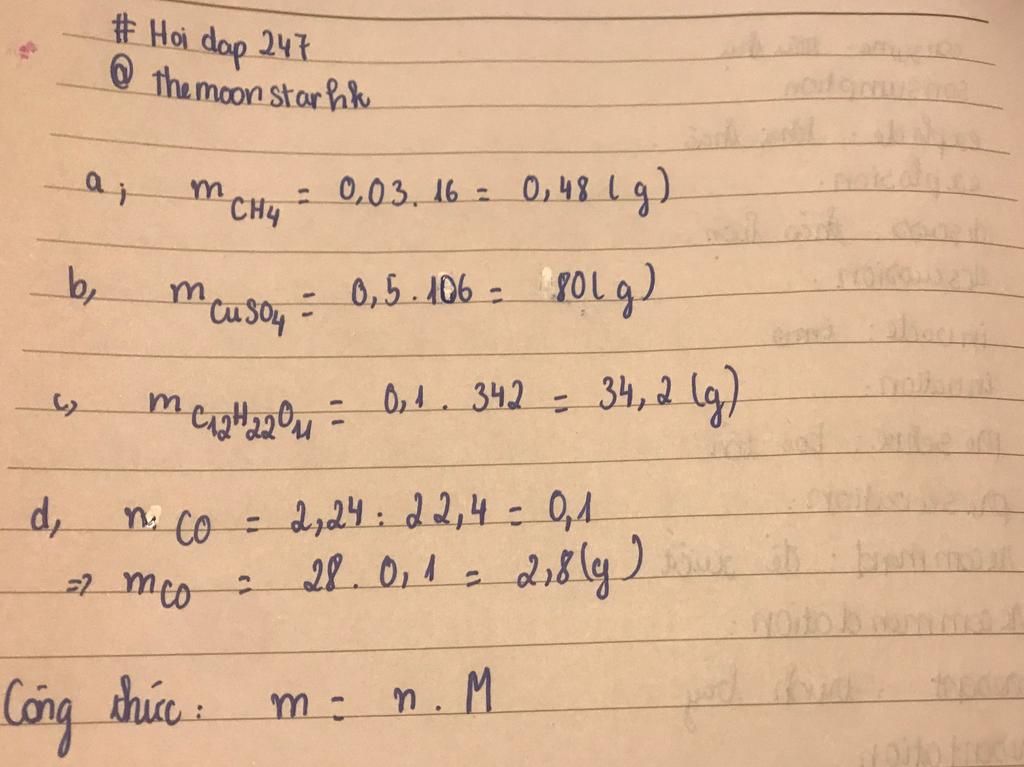 # Hoi dap 247
@ themoonstarhk
a; mCH4 = 0,03. 16 = 0,48 (g)
b, mCuSO4 = 0,5. 106 = 80(g)
c, mC12H22O11 = 0,1. 342 = 34,2 (g)
d, nCO = 2,24 : 22,4 = 0,1
=> mCO = 28. 0,1 = 2,8 (g)
Công thức: m = n. M